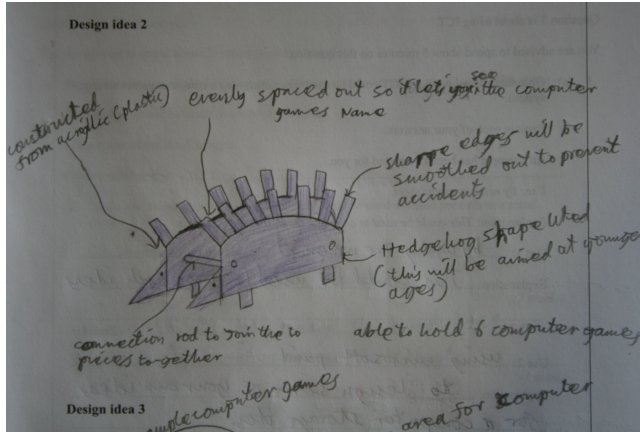 Design idea 2
constructed
from acrylic (plastic)
evenly spaced out so it lets you see the computer
games name
sharpe edges will be
smoothed out to prevent
accidents
Hedgehog shape
(this will be aimed at younger
ages)
connection rod to join the to
pieces to-gether
able to hold 6 computer games
Design idea 3
computer games
area for computer